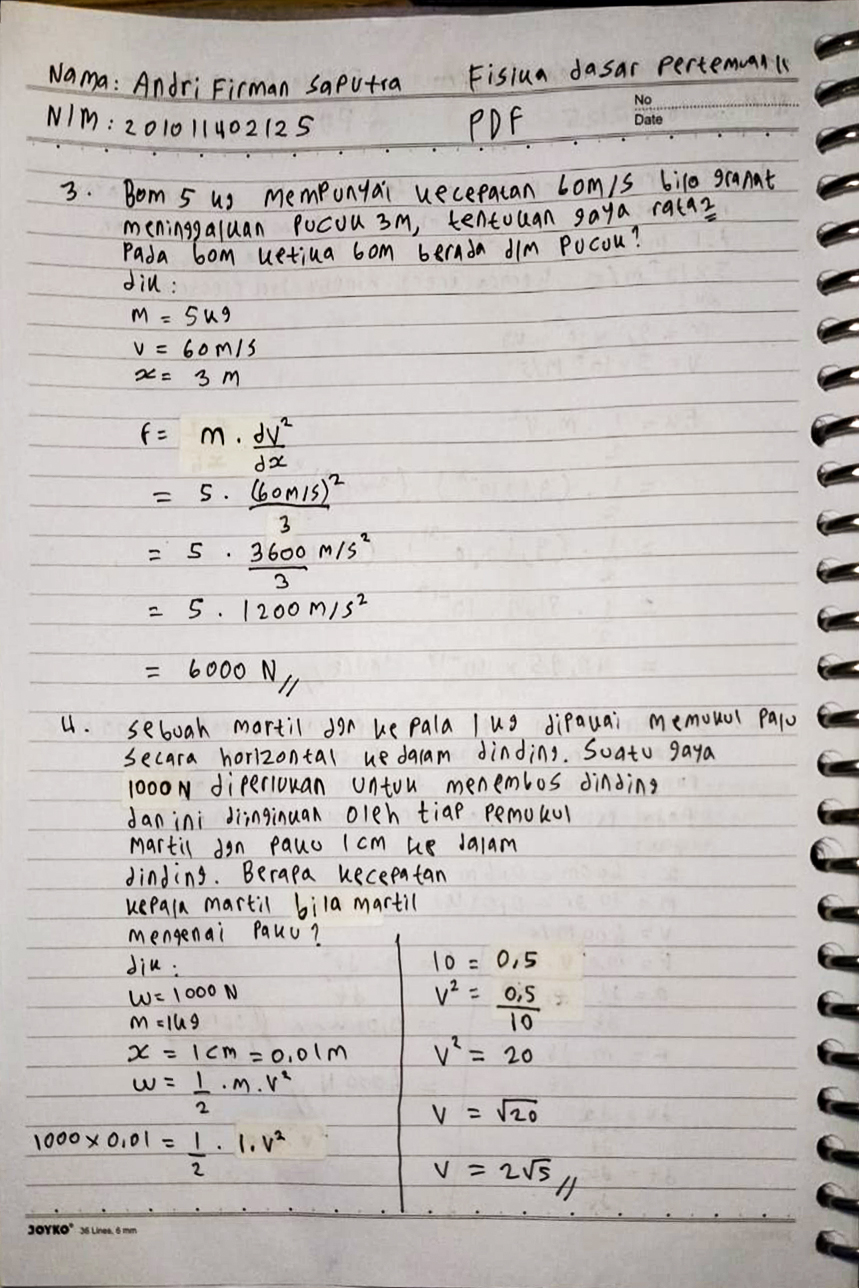 Nama: Andri Firman Saputra
Fisika dasar Pertemuan 11
NIM: 201011402125
PDF
No
Date
3. Bom 5 kg mempunyai kecepatan 60m/s bila granat
meninggalkan pucuk 3m, tentukan gaya rata2
pada bom ketika bom berada dlm pucuk?
dik :
m = 5kg
v = 60m/s
x = 3 m
f = m . dv²/dx
= 5 . (60m/s)²/3
= 5 . 3600 m/s²/3
= 5 . 1200 m/s²
= 6000 N //
4. sebuah martil dgn kepala 1 kg dipakai memukul palu
secara horizontal ke dalam dinding. Suatu gaya
1000 N diperlukan untuk menembos dinding
dan ini diinginkan oleh tiap pemukul
martil dgn paku 1 cm ke dalam
dinding. Berapa kecepatan
kepala martil bila martil
mengenai paku?
dik :
W = 1000 N
m = 1kg
x = 1cm = 0,01m
W = 1/2 . m . v²
1000 x 0,01 = 1/2 . 1. v²
10 = 0,5
V² = 0,5/10
V² = 20
V = √20
V = 2√5 //
JOYKO® 36 Lines, 6 mm